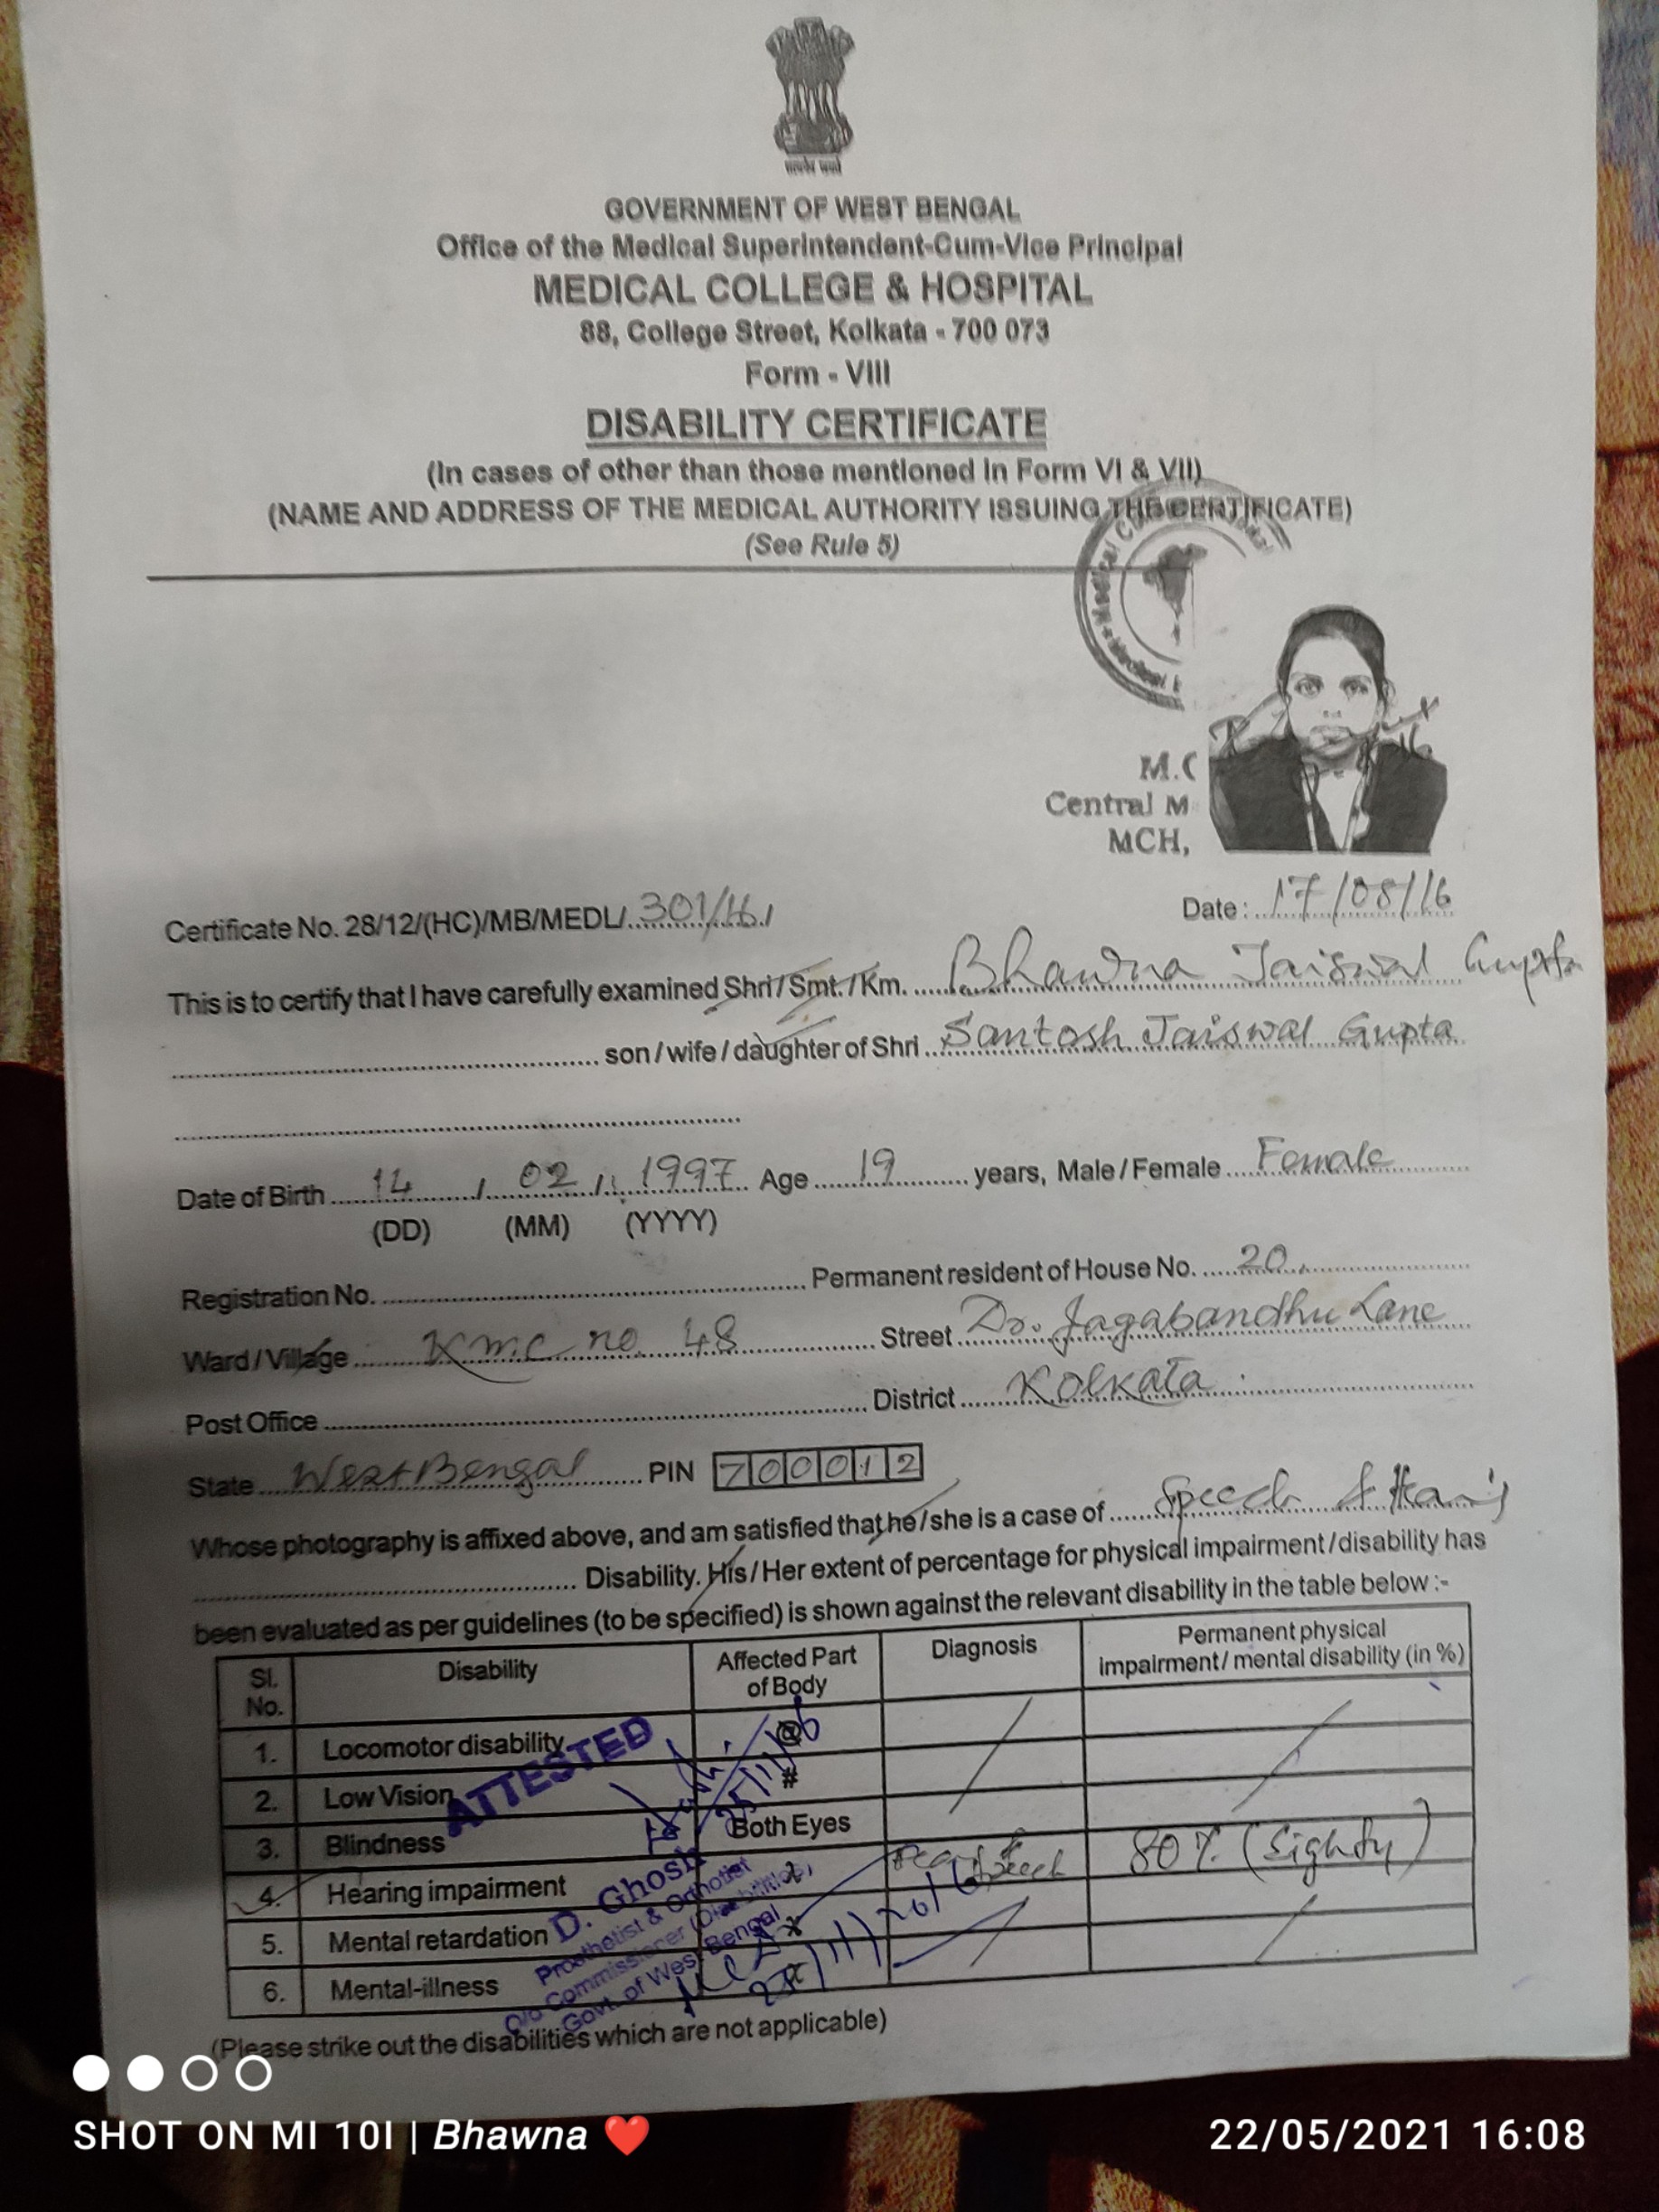 सत्यमेव जयते
GOVERNMENT OF WEST BENGAL
Office of the Medical Superintendent-Cum-Vice Principal
MEDICAL COLLEGE & HOSPITAL
88, College Street, Kolkata - 700 073
Form - VIII
DISABILITY CERTIFICATE
(In cases of other than those mentioned in Form VI & VII)
(NAME AND ADDRESS OF THE MEDICAL AUTHORITY ISSUING THE CERTIFICATE)
(See Rule 5)
Medical
M.C
Central M
MCH,
Certificate No. 28/12/(HC)/MB/MEDL/ 301/16/
Date: 17/08/16
This is to certify that I have carefully examined Shri / Smt. / Km. Bhawna Jaiswal Gupta
son / wife / daughter of Shri Santosh Jaiswal Gupta
Date of Birth 14 / 02 / 1997 Age 19 years, Male / Female Female
(DD) (MM) (YYYY)
Registration No. Permanent resident of House No. 20
Ward / Village KMC no 48 Street Dr. Jagabandhu Lane
Post Office District Kolkata
State West Bengal PIN 700012
Whose photography is affixed above, and am satisfied that he / she is a case of Speech &
Disability. His / Her extent of percentage for physical impairment / disability has
been evaluated as per guidelines (to be specified) is shown against the relevant disability in the table below :-
Sl. No. Disability Affected Part of Body Diagnosis Permanent physical impairment / mental disability (in %)
1. Locomotor disability @
2. Low Vision #
3. Blindness Both Eyes
4. Hearing impairment Speech 80% (Eighty)
5. Mental retardation x
6. Mental-illness
ATTESTED
25/11/16
D. Ghosh
Prosthetist & Orthotist
O/o Commissioner (Disabilities)
Govt. of West Bengal
25/11/2016
(Please strike out the disabilities which are not applicable)
SHOT ON MI 10I | Bhawna ❤️
22/05/2021 16:08